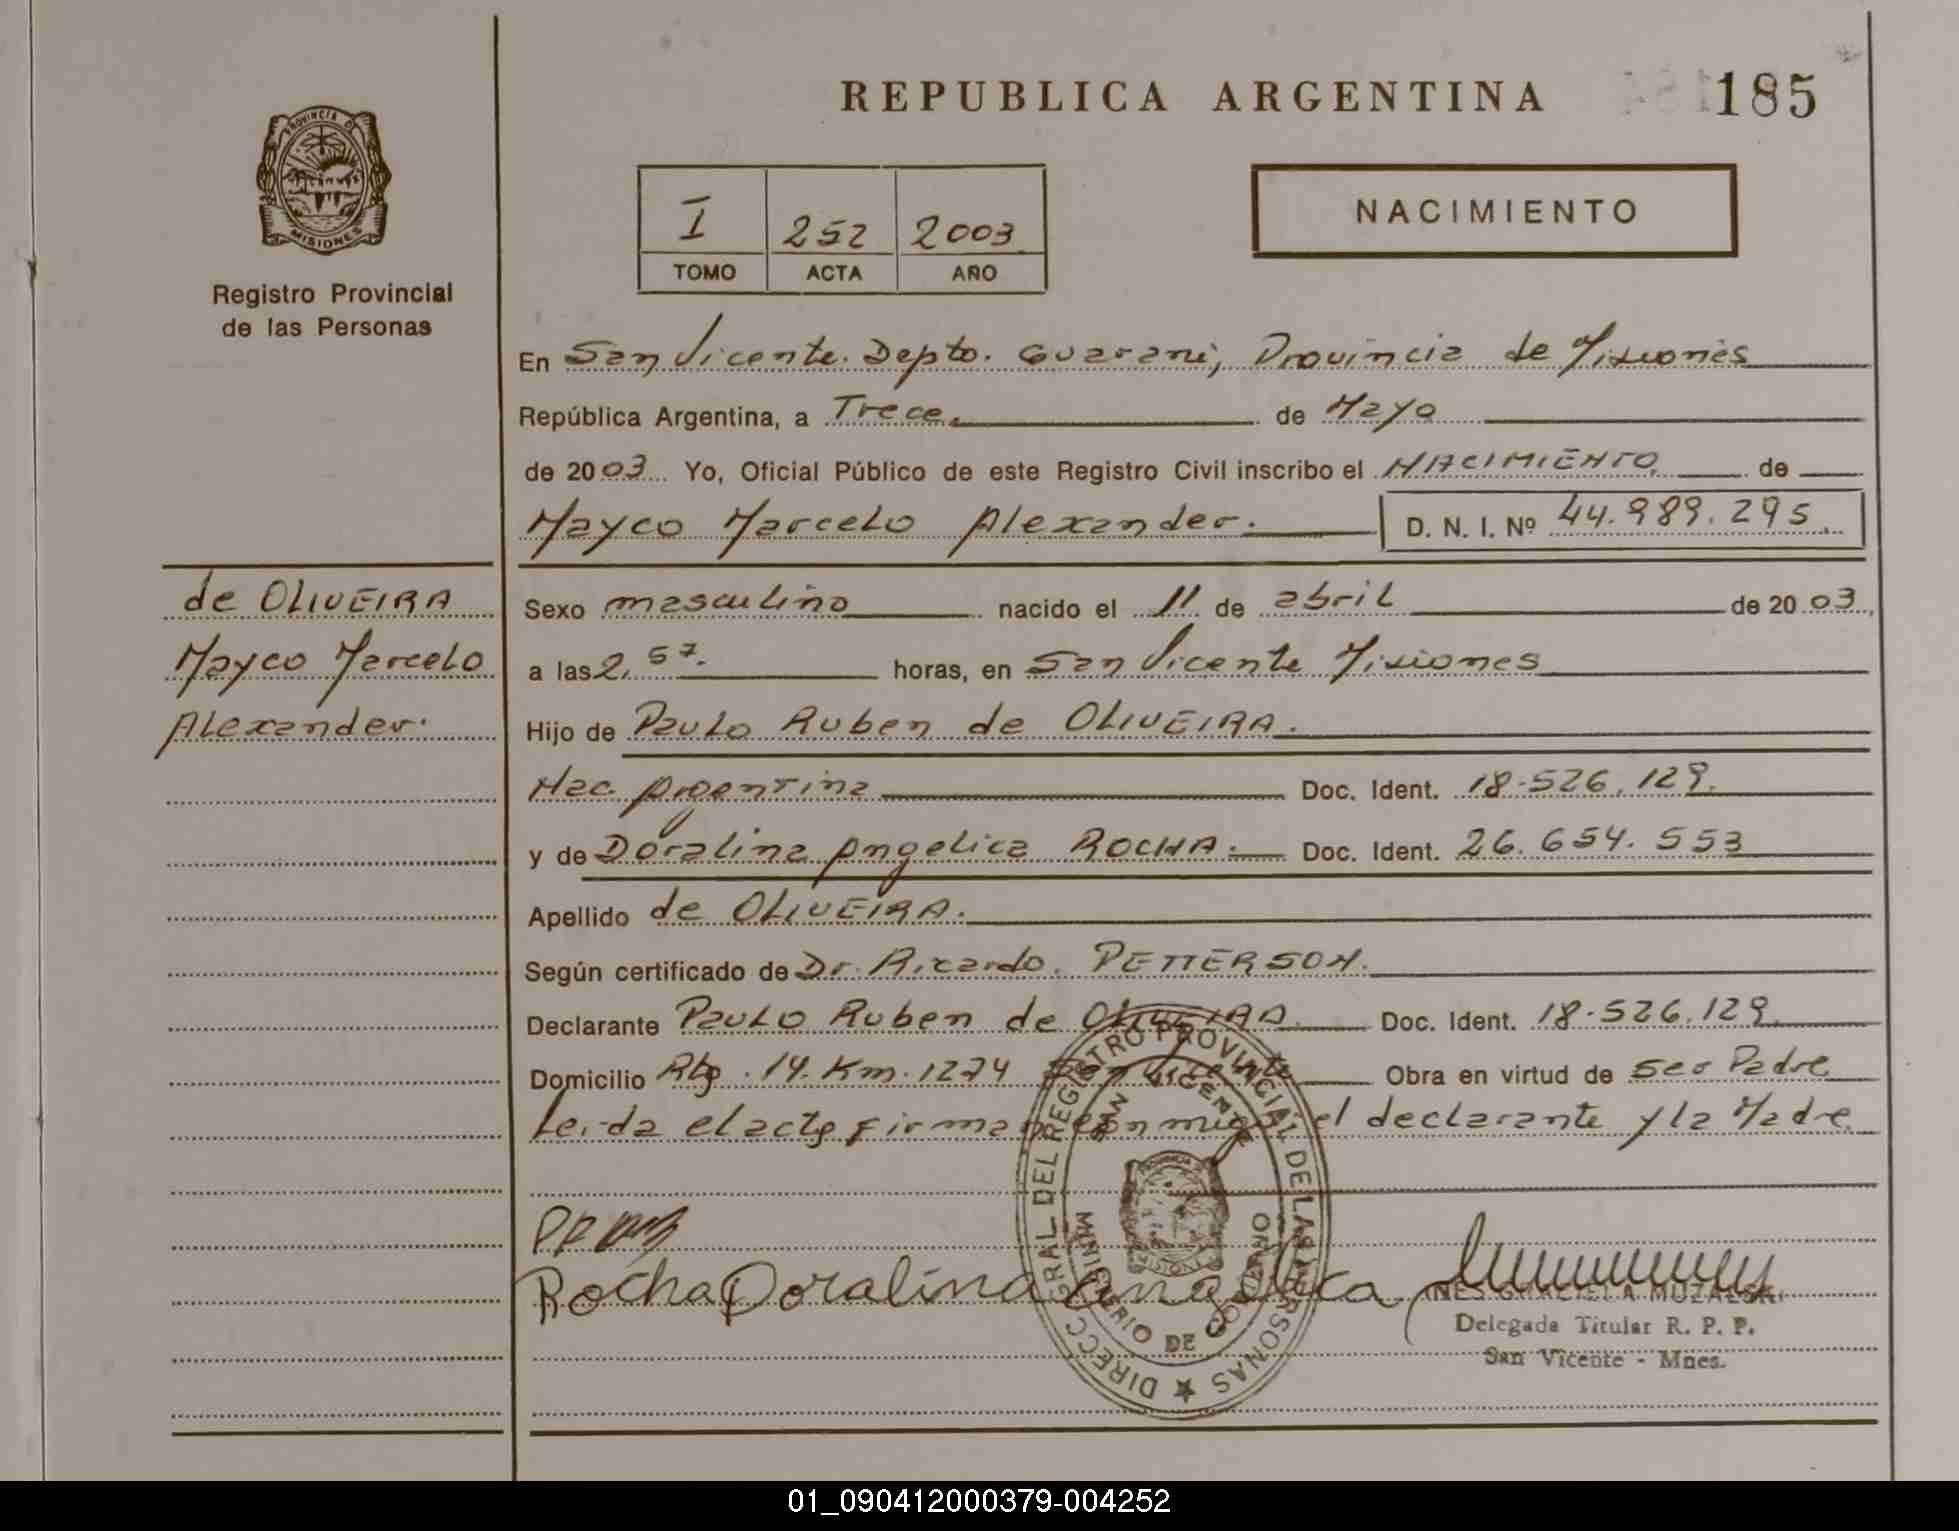 REPUBLICA ARGENTINA
185
PROVINCIA DE MISIONES
Registro Provincial
de las Personas
I 252 2003
TOMO ACTA AÑO
NACIMIENTO
En San Vicente. Depto. Guarani, Provincia de Misiones
República Argentina, a Trece. de Mayo
de 2003 Yo, Oficial Público de este Registro Civil inscribo el NACIMIENTO de
Mayco Marcelo Alexander. D. N. I. Nº 44.989.295.
de OLIVEIRA
Mayco Marcelo
Alexander.
Sexo masculino nacido el 11 de abril de 2003
a las 2,57. horas, en San Vicente Misiones
Hijo de Paulo Ruben de OLIVEIRA.
Nac. Argentina Doc. Ident. 18.526.129.
y de Doralina Angelica ROCHA. Doc. Ident. 26.654.553
Apellido de OLIVEIRA.
Según certificado de Dr. Ricardo. PETTERSON.
Declarante Paulo Ruben de OLIVEIRA. Doc. Ident. 18.526.129.
Domicilio . 14. Km. 1274 San Vicente Obra en virtud de ser Padre
Leida el acta firman conmigo el declarante y la Madre.
DIRECC. GRAL. DEL REGISTRO PROVINCIAL DE LAS PERSONAS
SAN VICENTE
MINISTERIO DE GOBIERNO
Rocha Doralina Angelica
INES GRACIELA
Delegada Titular R. P. P.
San Vicente - Mnes.
01_090412000379-004252